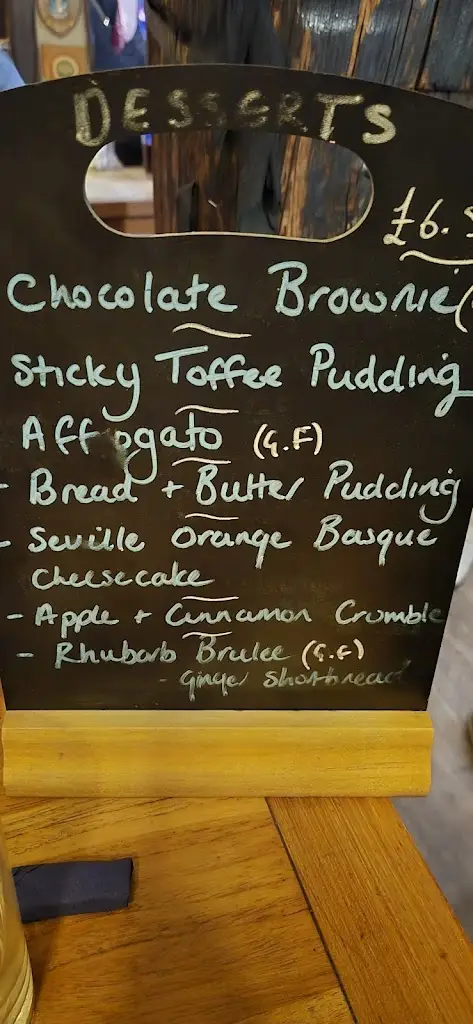 DESSERTS
£6.5
Chocolate Brownie (
Sticky Toffee Pudding
Affogato (G.F)
- Bread + Butter Pudding
- Seville Orange Basque
Cheesecake
- Apple + Cinnamon Crumble
- Rhubarb Brulee (G.F)
- ginger Shortbread